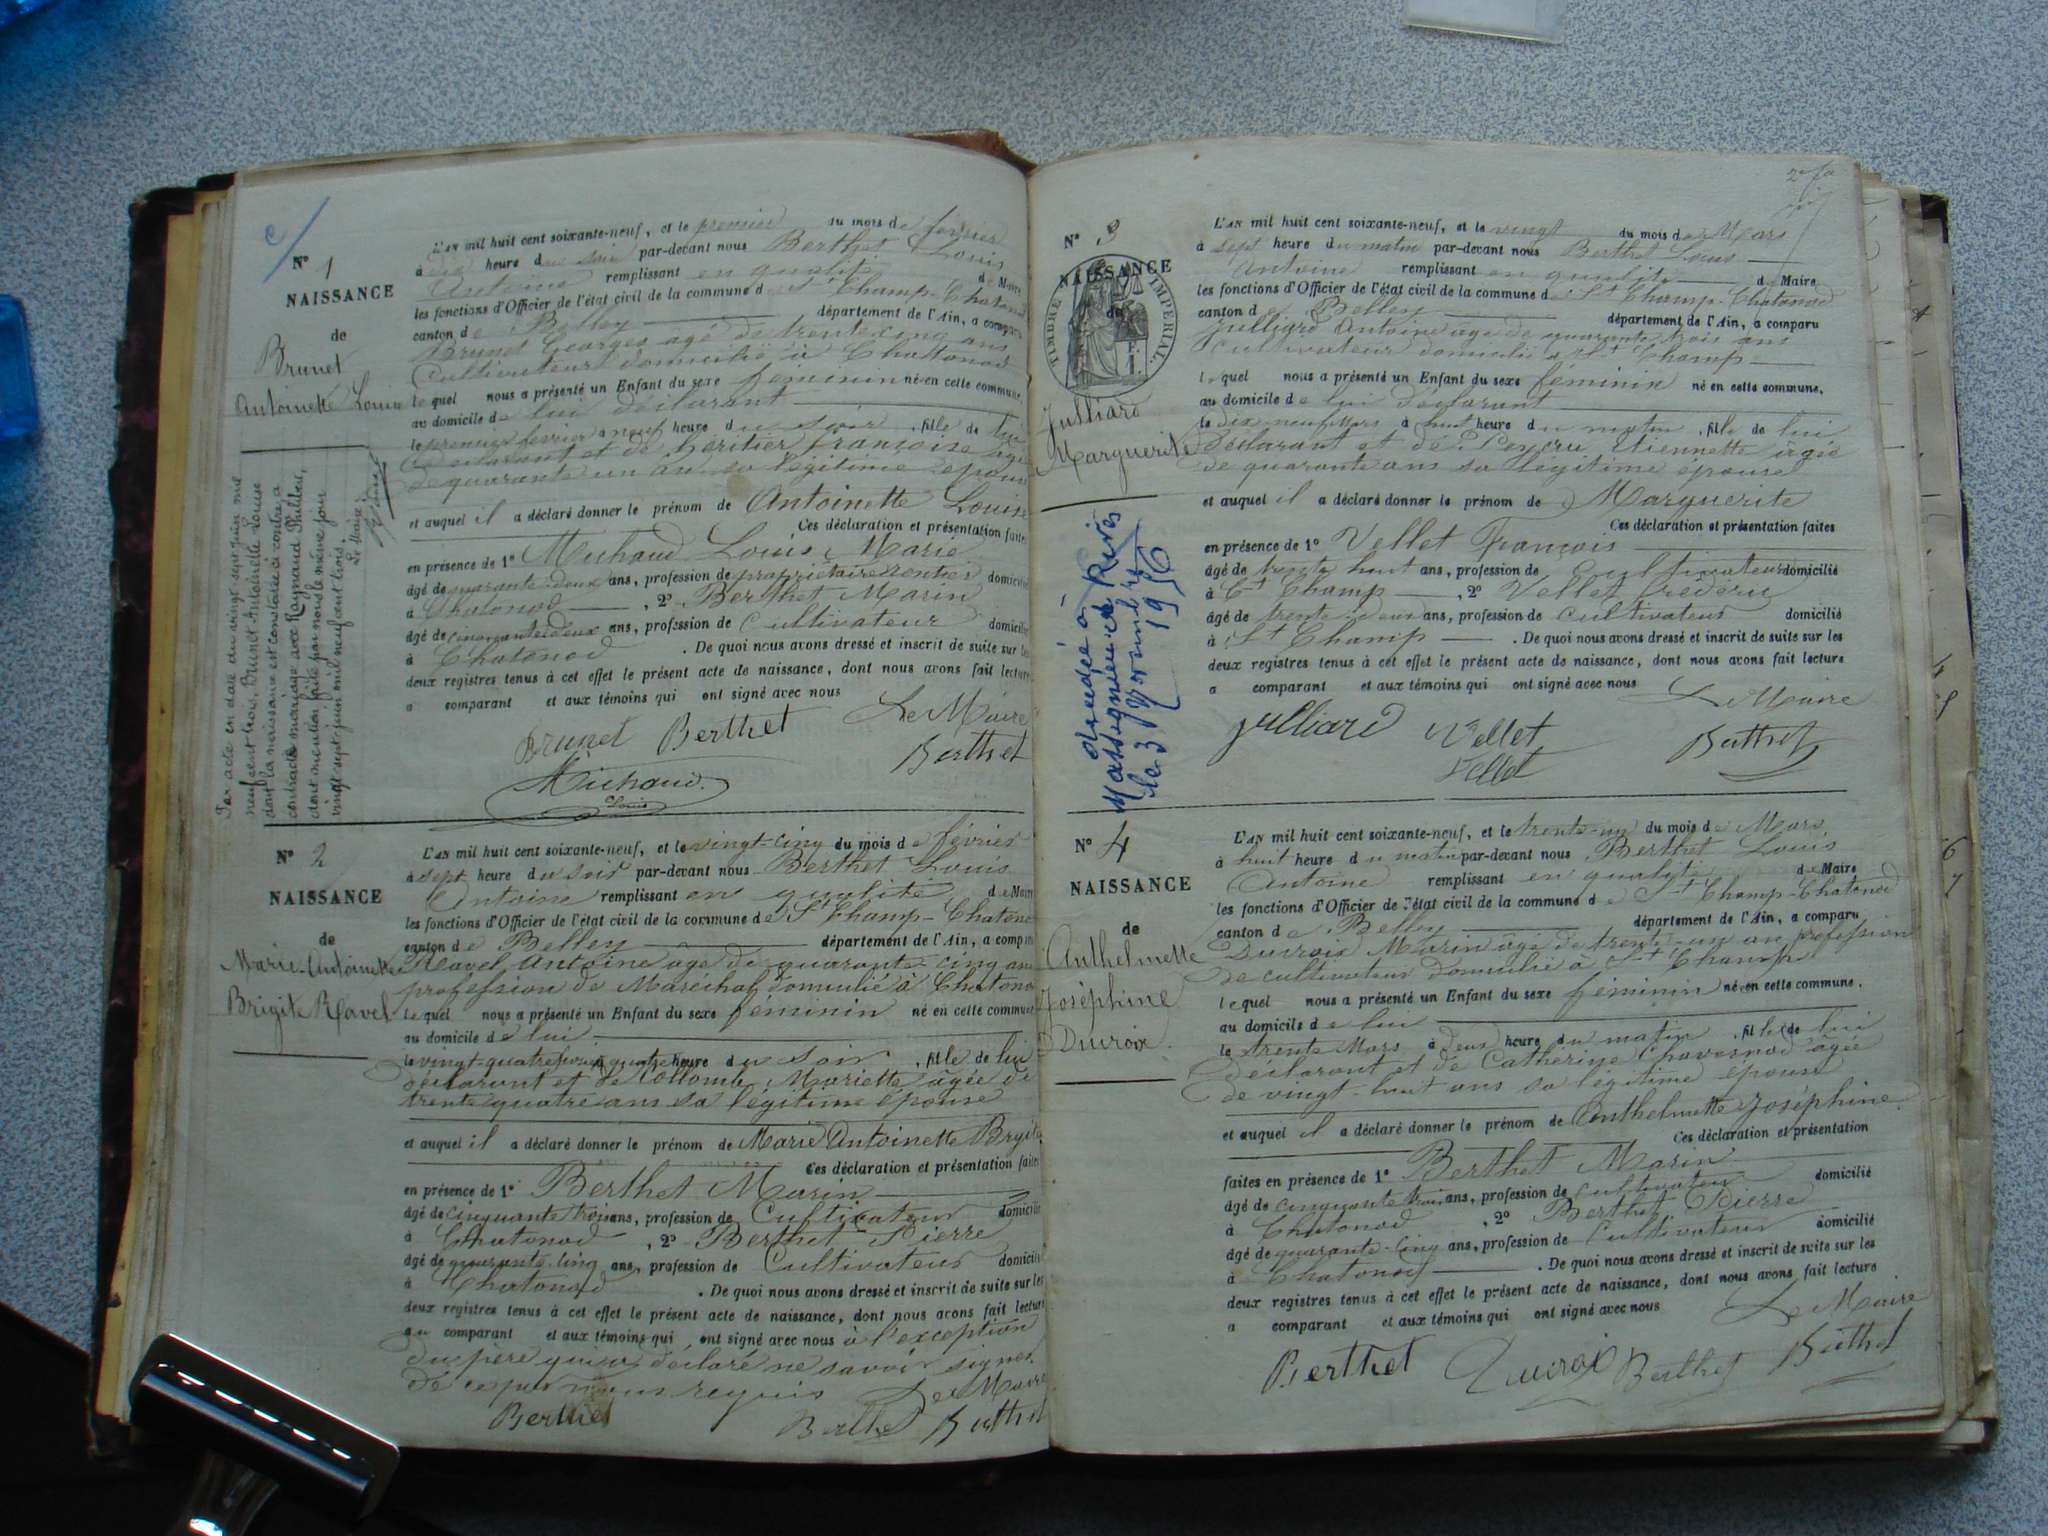 N° 1
NAISSANCE
de
Brunet
Antoinette Louise
L'AN mil huit cent soixante-neuf, et le premier du mois de février
à dix heure du soir par-devant nous Berthet Louis
Antoine remplissant en qualité de Maire
les fonctions d'Officier de l'état civil de la commune de St Champ-Chatonod
canton de Belley département de l'Ain, a comparu
Brunet Georges agé de trente cinq ans
Cultivateur domicilié à Chatonod
lequel nous a présenté un Enfant du sexe féminin né en cette commune,
au domicile de lui déclarant
le premier février à neuf heure du soir, fille de lui
déclarant et de héritier françoise agée
de quarante un an sa légitime épouse
et auquel il a déclaré donner le prénom de Antoinette Louise
Ces déclaration et présentation faites
en présence de 1° Michaud Louis Marie
âgé de quarante deux ans, profession de propriétaire rentier domicilié
à Chatonod, 2° Berthet Marin
âgé de cinquante deux ans, profession de Cultivateur domicilié
à Chatonod. De quoi nous avons dressé et inscrit de suite sur les
deux registres tenus à cet effet le présent acte de naissance, dont nous avons fait lecture
a comparant et aux témoins qui ont signé avec nous
Le Maire
Brunet Berthet Berthet
Michaud
Louis
Par acte en date du vingt sept juin mil
neuf cent trois, Brunet Antoinette Louise
dont la naissance est constatée ci contre, a
contracté mariage avec Raynaud Philibert,
dont mention faite par nous le même jour
vingt sept juin mil neuf cent trois.
Le Maire
N° 2
NAISSANCE
de
Marie-Antoinette
Brigite Ravel
L'AN mil huit cent soixante-neuf, et le vingt-cinq du mois de février
à sept heure du soir par-devant nous Berthet Louis
Antoine remplissant en qualité de Maire
les fonctions d'Officier de l'état civil de la commune de St Champ-Chatonod
canton de Belley département de l'Ain, a comparu
Ravel Antoine âgé de quarante-cinq ans
profession de Maréchal domicilié à Chatonod
lequel nous a présenté un Enfant du sexe féminin né en cette commune
au domicile de lui
le vingt-quatre février à quatre heure du soir, fille de lui
déclarant et de Collomb Mariette âgée de
trente quatre ans sa légitime épouse
et auquel il a déclaré donner le prénom de Marie Antoinette Brigite
Ces déclaration et présentation faites
en présence de 1° Berthet Marin
âgé de cinquante trois ans, profession de Cultivateur domicilié
à Chatonod, 2° Berthet Pierre
âgé de quarante-cinq ans, profession de Cultivateur domicilié
à Chatonod. De quoi nous avons dressé et inscrit de suite sur les
deux registres tenus à cet effet le présent acte de naissance, dont nous avons fait lecture
au comparant et aux témoins qui ont signé avec nous à l'exception
du père qui a déclaré ne savoir signer
de ce par nous requis Le Maire
Berthet Berthet Berthet
N° 3
NAISSANCE
de
TIMBRE IMPERIAL.
Julliard
Marguerite
L'AN mil huit cent soixante-neuf, et le vingt du mois de Mars
à sept heure du matin par-devant nous Berthet Louis
Antoine remplissant en qualité de Maire
les fonctions d'Officier de l'état civil de la commune de St Champ-Chatonod
canton de Belley département de l'Ain, a comparu
Julliard Antoine âgé de quarante trois ans
cultivateur domicilié à St Champ
lequel nous a présenté un Enfant du sexe féminin né en cette commune,
au domicile de lui déclarant
le dix neuf Mars à huit heure du matin, fille de lui
déclarant et de Peycru Etiennette âgée
de quarante ans sa légitime épouse
et auquel il a déclaré donner le prénom de Marguerite
Ces déclaration et présentation faites
en présence de 1° Vellet François
âgé de trente huit ans, profession de Cultivateur domicilié
à St Champ, 2° Vellet Frédéric
âgé de trente deux ans, profession de cultivateur domicilié
à St Champ. De quoi nous avons dressé et inscrit de suite sur les
deux registres tenus à cet effet le présent acte de naissance, dont nous avons fait lecture
a comparant et aux témoins qui ont signé avec nous
Le Maire
Julliard Vellet Berthet
Vellet
décédée à
Massignieu de Rives
le 3 1956
N° 4
NAISSANCE
de
Anthelmette
Joséphine
Ducroix
L'AN mil huit cent soixante-neuf, et le trente-un du mois de Mars
à huit heure du matin par-devant nous Berthet Louis
Antoine remplissant en qualité de Maire
les fonctions d'Officier de l'état civil de la commune de St Champ-Chatonod
canton de Belley département de l'Ain, a comparu
Ducroix Marin âgé de trente-un an profession
de cultivateur domicilié à St Champ
lequel nous a présenté un Enfant du sexe féminin né en cette commune.
au domicile de lui
le trente Mars à deux heure du matin, fille de lui
déclarant et de Catherine Chavosnod âgée
de vingt-huit ans sa légitime épouse
et auquel il a déclaré donner le prénom de Anthelmette Joséphine
Ces déclaration et présentation
faites en présence de 1° Berthet Marin
âgé de cinquante trois ans, profession de cultivateur domicilié
à Chatonod, 2° Berthet Pierre
âgé de quarante-cinq ans, profession de Cultivateur domicilié
à Chatonod. De quoi nous avons dressé et inscrit de suite sur les
deux registres tenus à cet effet le présent acte de naissance, dont nous avons fait lecture
a comparant et aux témoins qui ont signé avec nous
Le Maire
Berthet Ducroix Berthet Berthet